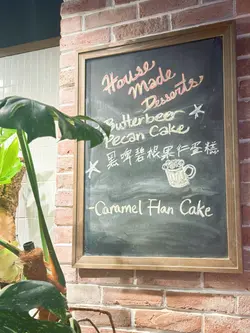 House
Made
Desserts
Butterbeer
Pecan Cake
黑啤碧根果仁蛋糕
-Caramel Flan Cake